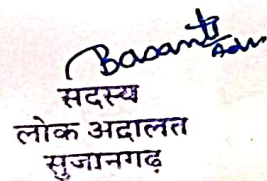 Basant
Adv
सदस्य
लोक अदालत
सुजानगढ़